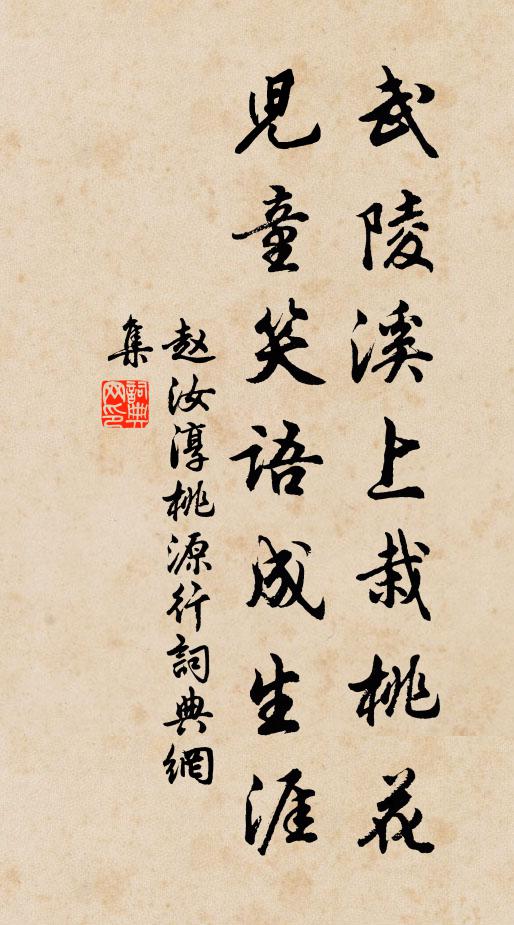 武陵溪上栽桃花
兒童笑語成生涯
赵汝淳桃源行詞典網
集
詞典网印